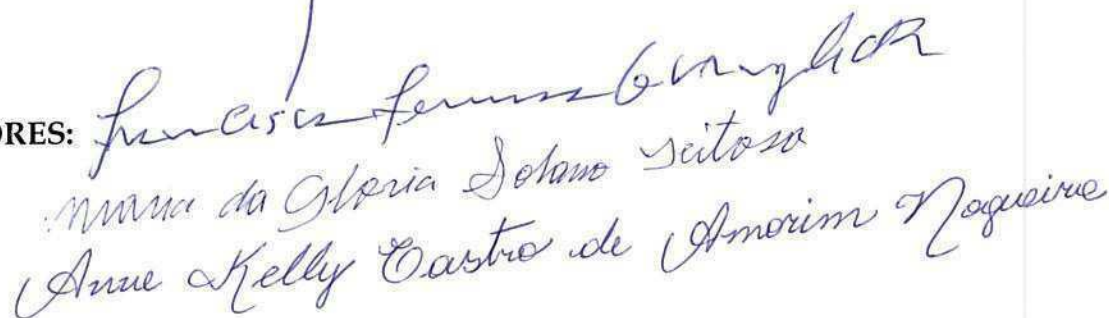 ORES: Francisca
Maria da Gloria Solano Feitosa
Anne Kelly Castro de Amorim Nogueira